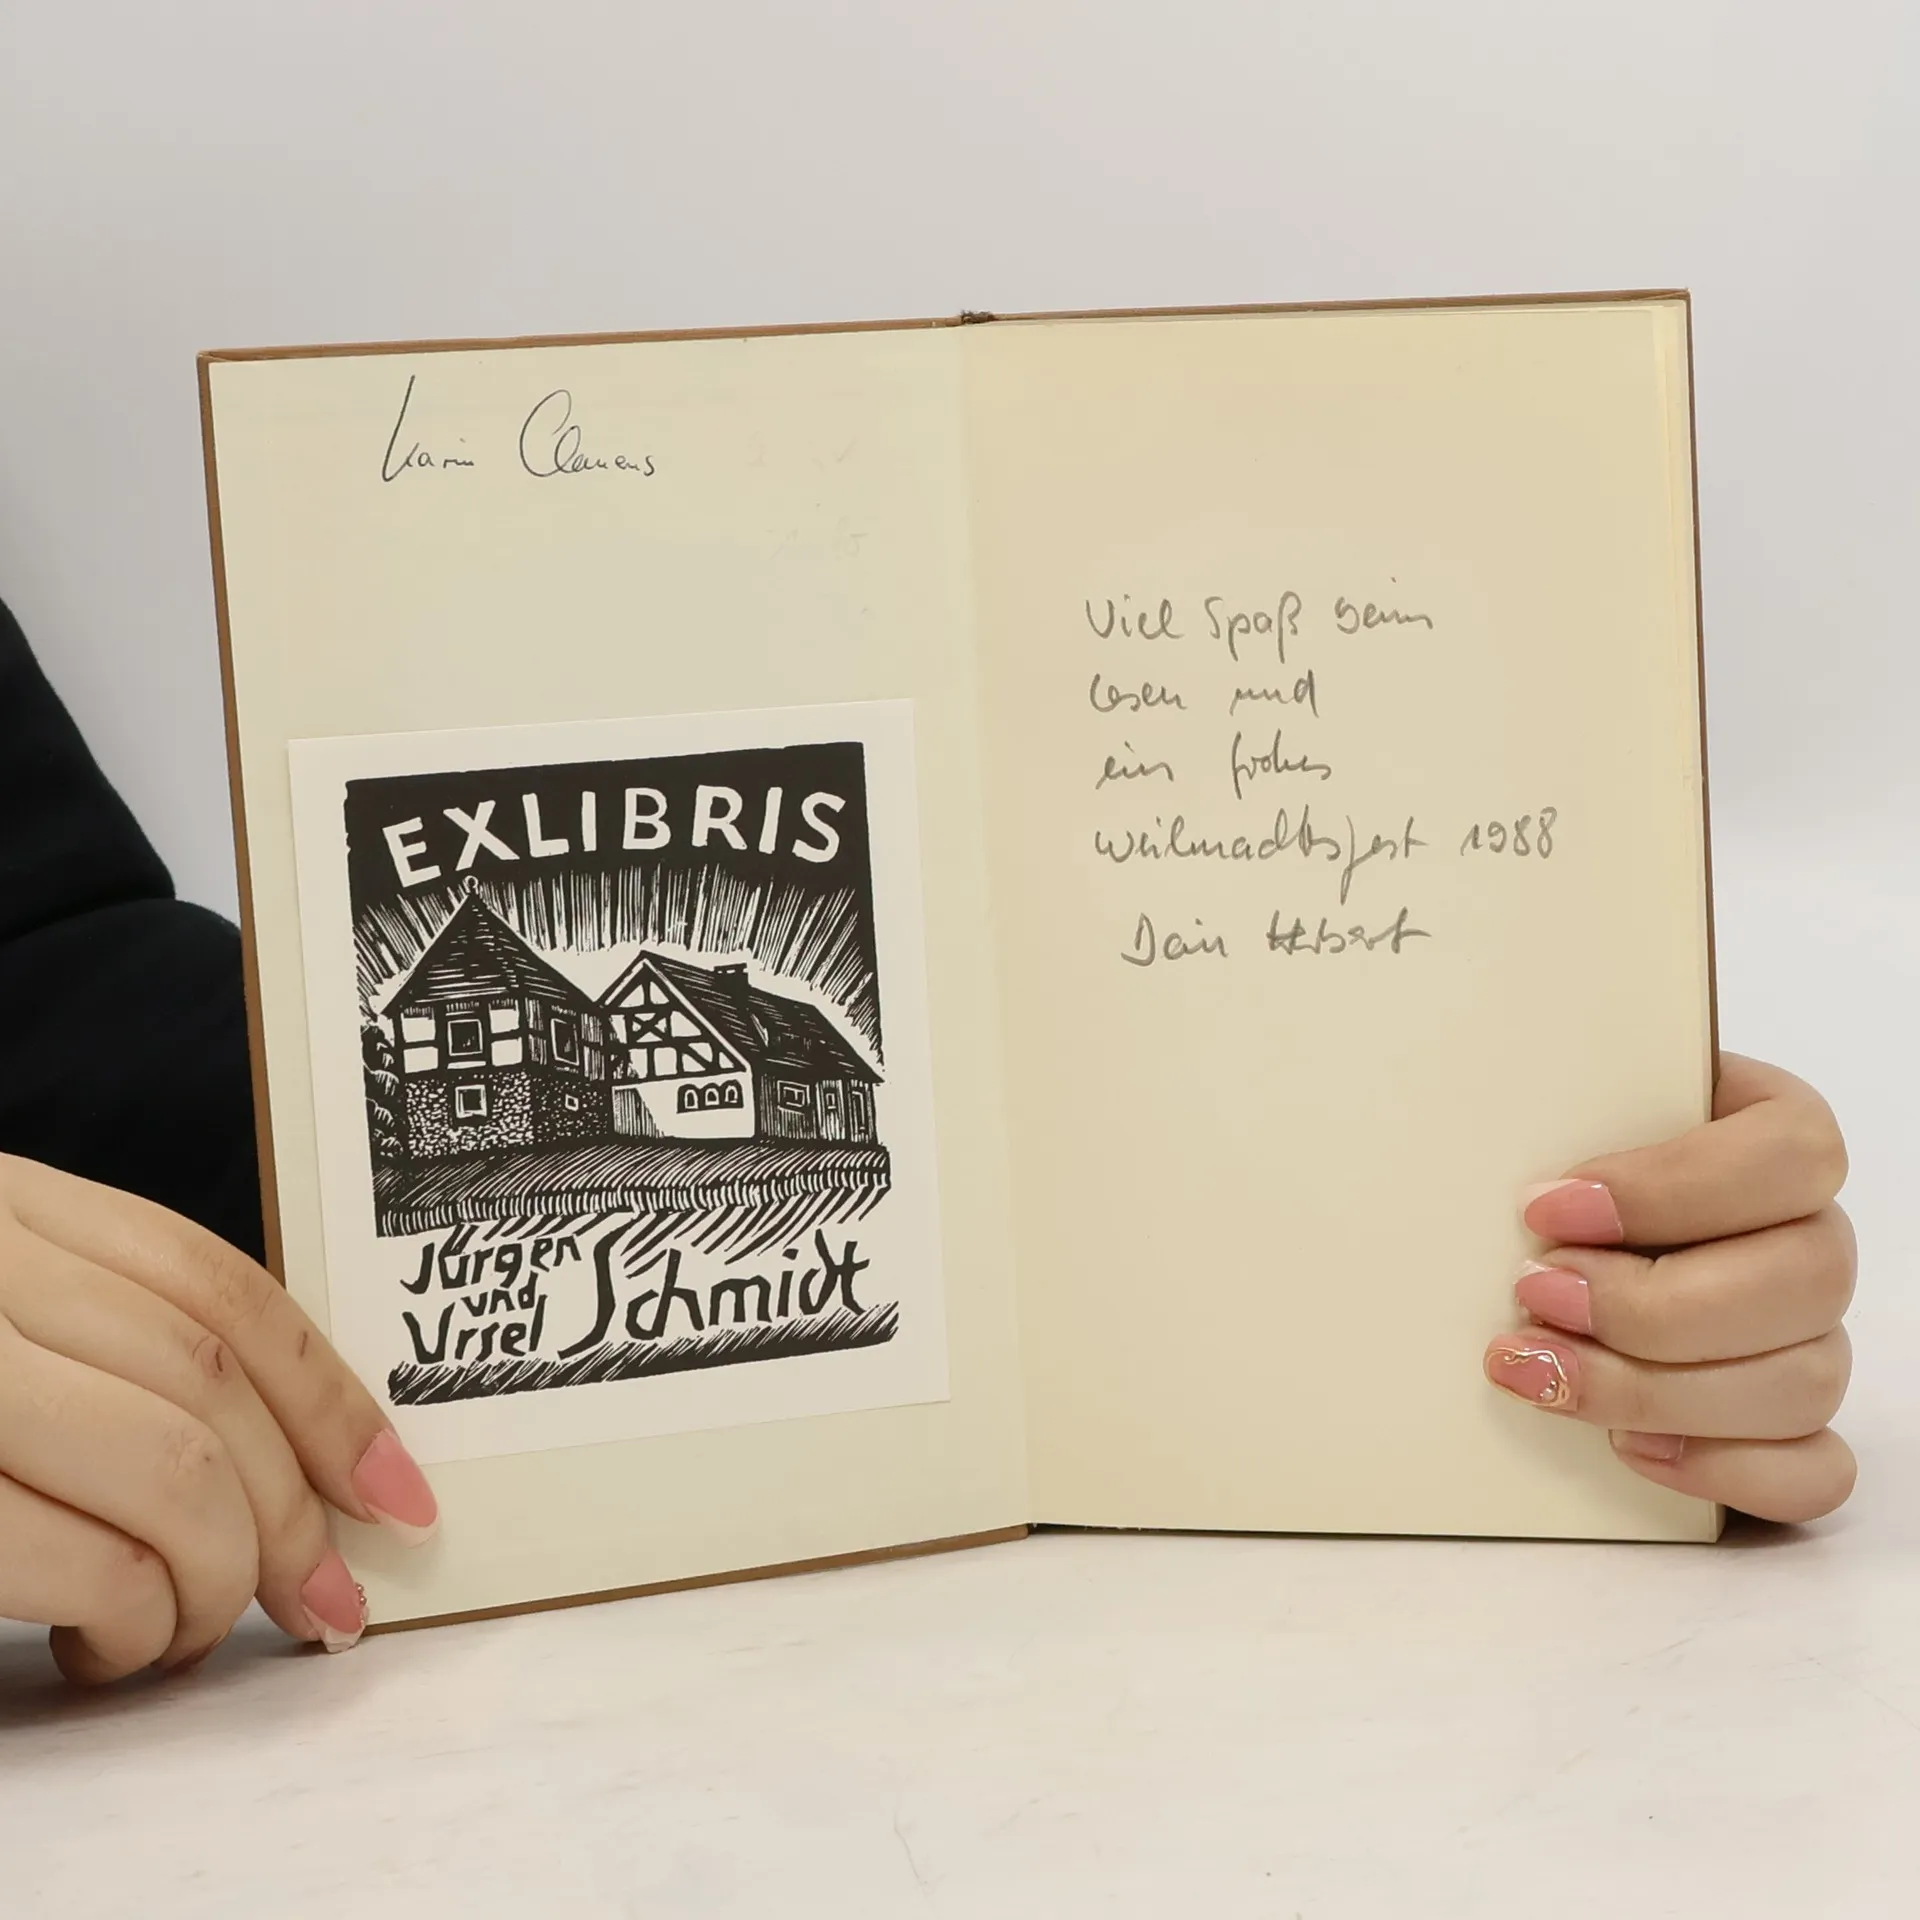 Karin Clemens
EXLIBRIS
Jürgen
und
Ursel Schmidt
Viel Spaß beim
Lesen und
ein frohes
Weihnachtsfest 1988
Dein Herbert